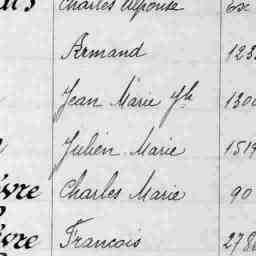 Charles Alphonse
Armand 123
Jean Marie Yh 1300
Julien Marie 1519
èvre Charles Marie 90
èvre Francois 278